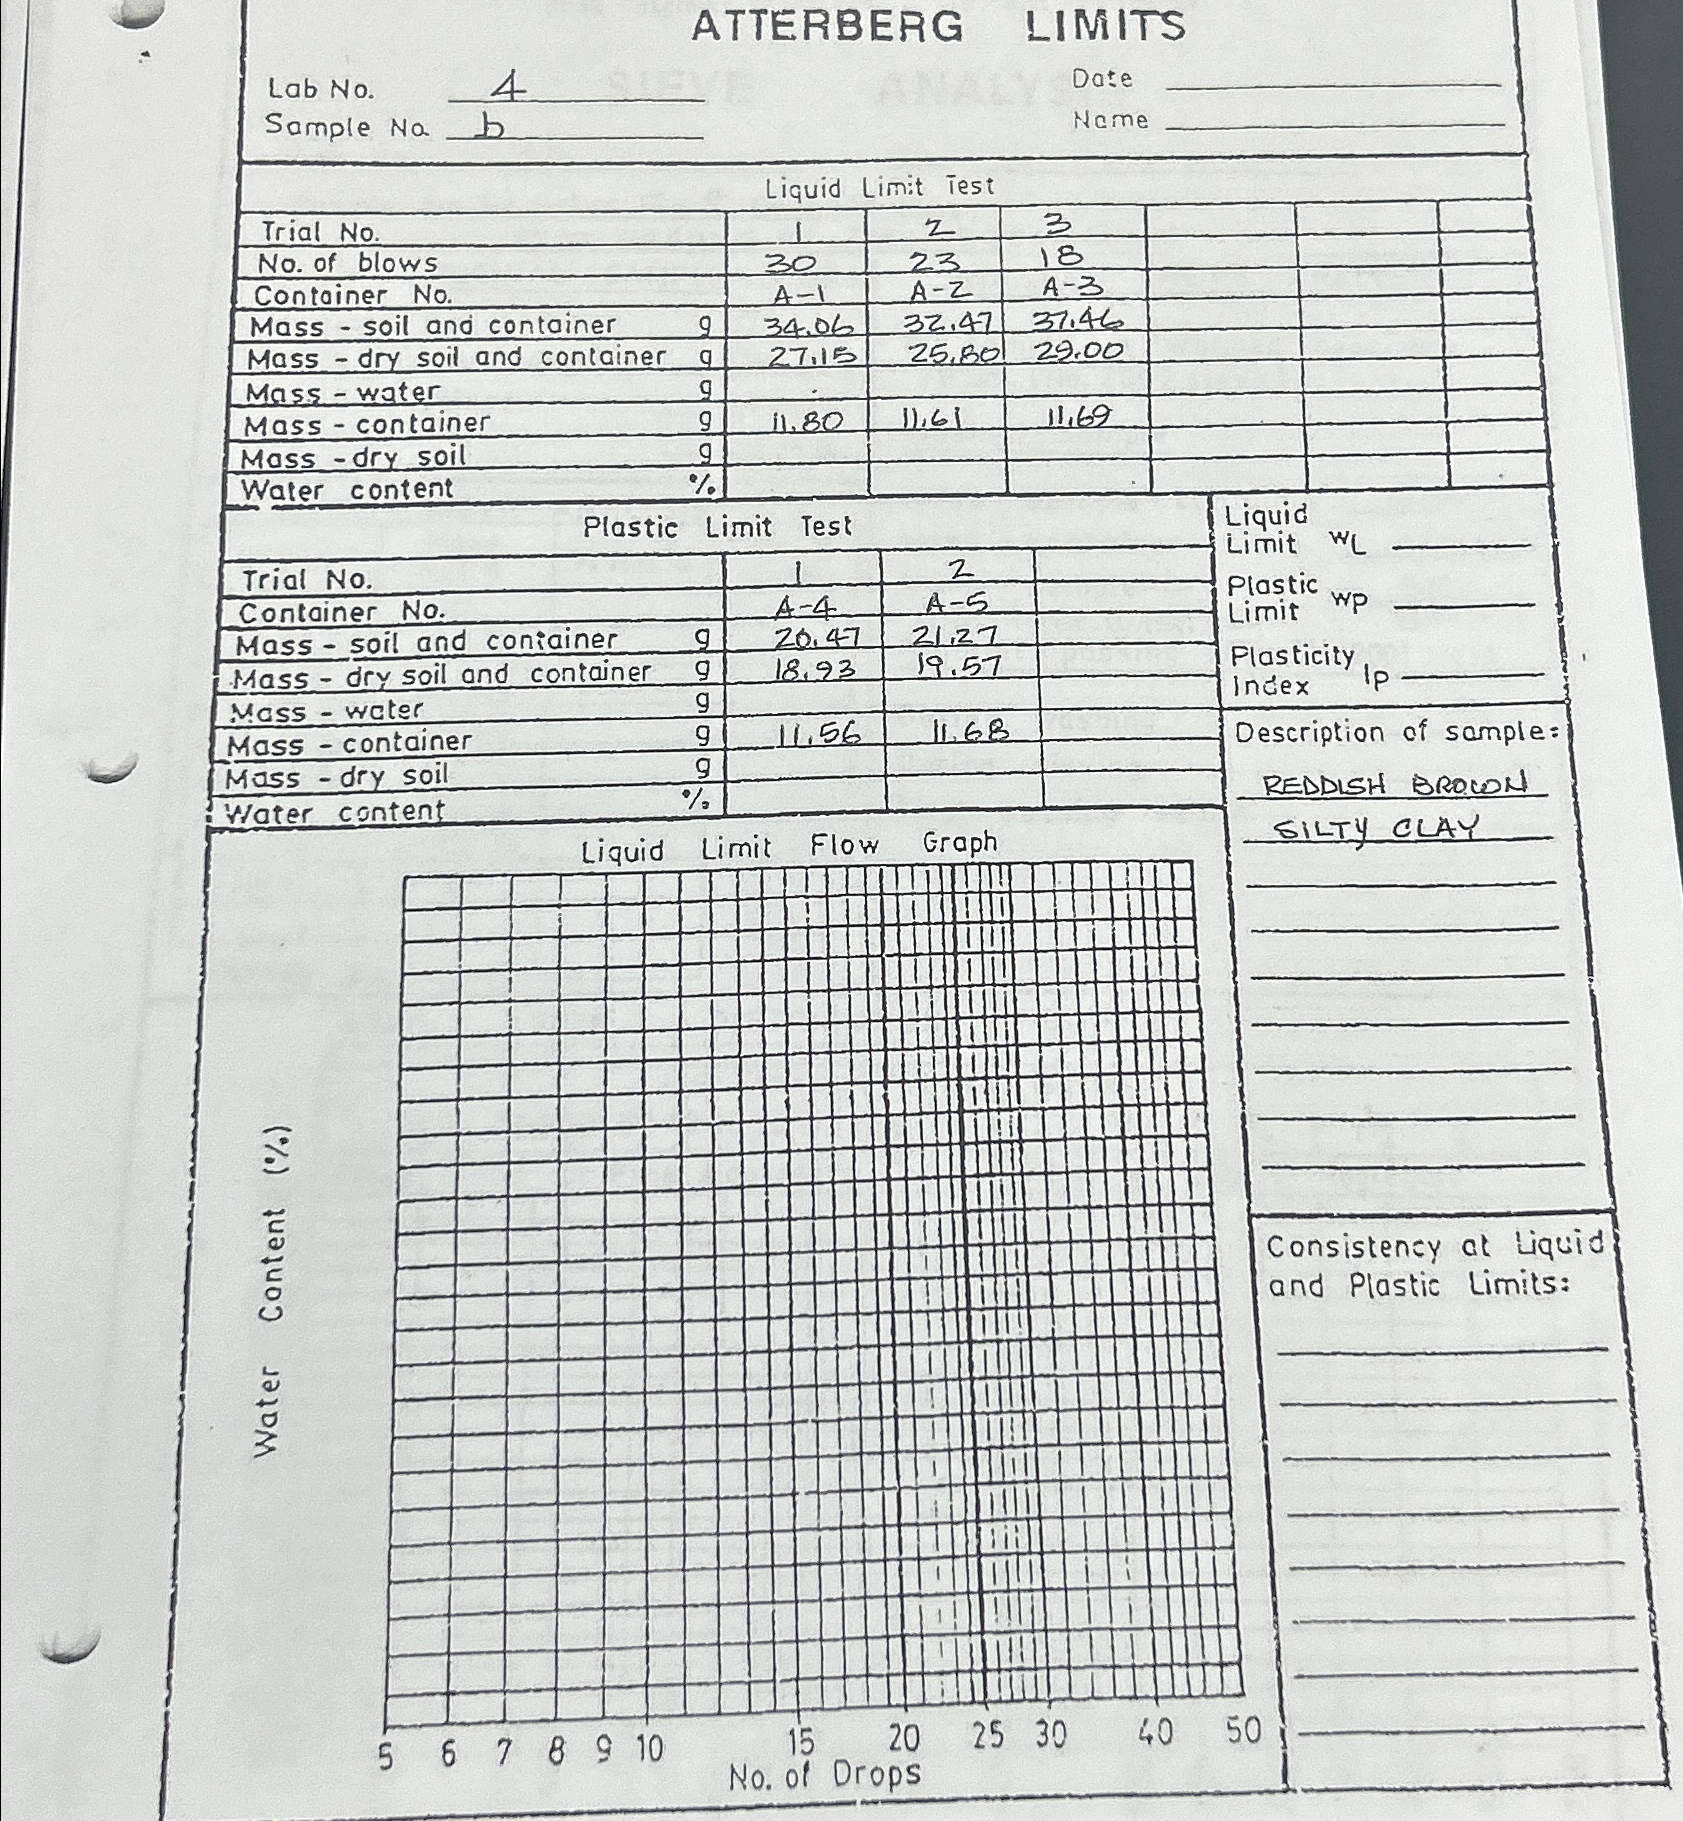 ATTERBERG LIMITS
Lab No. 4 Date
Sample No. b Name
Liquid Limit Test
Trial No. 1 2 3
No. of blows 30 23 18
Container No. A-1 A-2 A-3
Mass - soil and container g 34.06 32.47 37.46
Mass - dry soil and container g 27.15 25.80 29.00
Mass - water g
Mass - container g 11.80 11.61 11.69
Mass - dry soil g
Water content %
Plastic Limit Test
Trial No. 1 2
Container No. A-4 A-5
Mass - soil and container g 20.47 21.27
Mass - dry soil and container g 18.93 19.57
Mass - water g
Mass - container g 11.56 11.68
Mass - dry soil g
Water content %
Liquid
Limit WL
Plastic
Limit WP
Plasticity
Index IP
Description of sample:
REDDISH BROWN
SILTY CLAY
Liquid Limit Flow Graph
Water Content (%)
5 6 7 8 9 10 15 20 25 30 40 50
No. of Drops
Consistency at Liquid
and Plastic Limits: